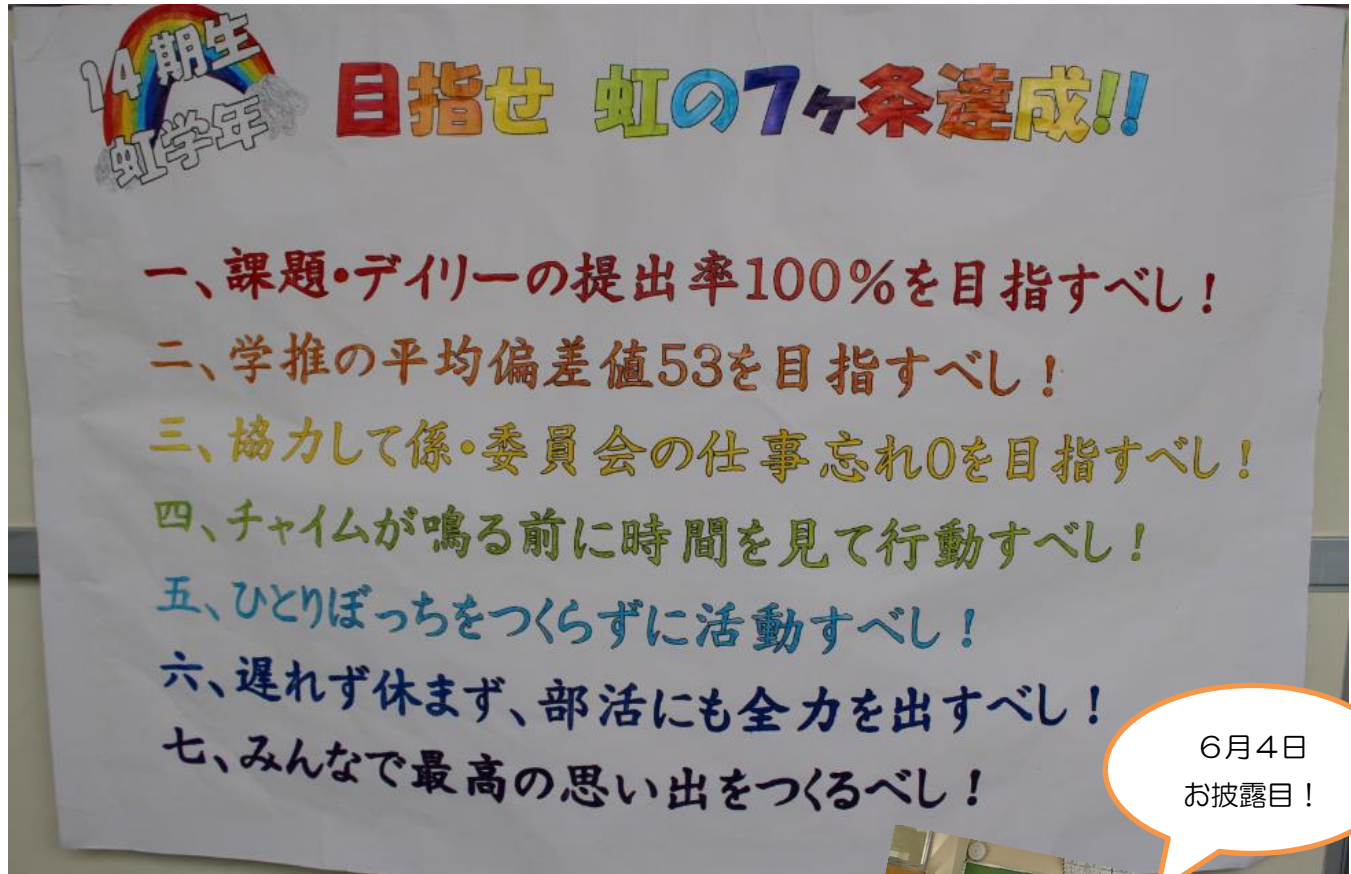 14期生
虹学年
目指せ 虹の7ヶ条達成!!
一、課題・デイリーの提出率100%を目指すべし!
二、学推の平均偏差値53を目指すべし!
三、協力して係・委員会の仕事忘れ0を目指すべし!
四、チャイムが鳴る前に時間を見て行動すべし!
五、ひとりぼっちをつくらずに活動すべし!
六、遅れず休まず、部活にも全力を出すべし!
七、みんなで最高の思い出をつくるべし!
6月4日
お披露目!